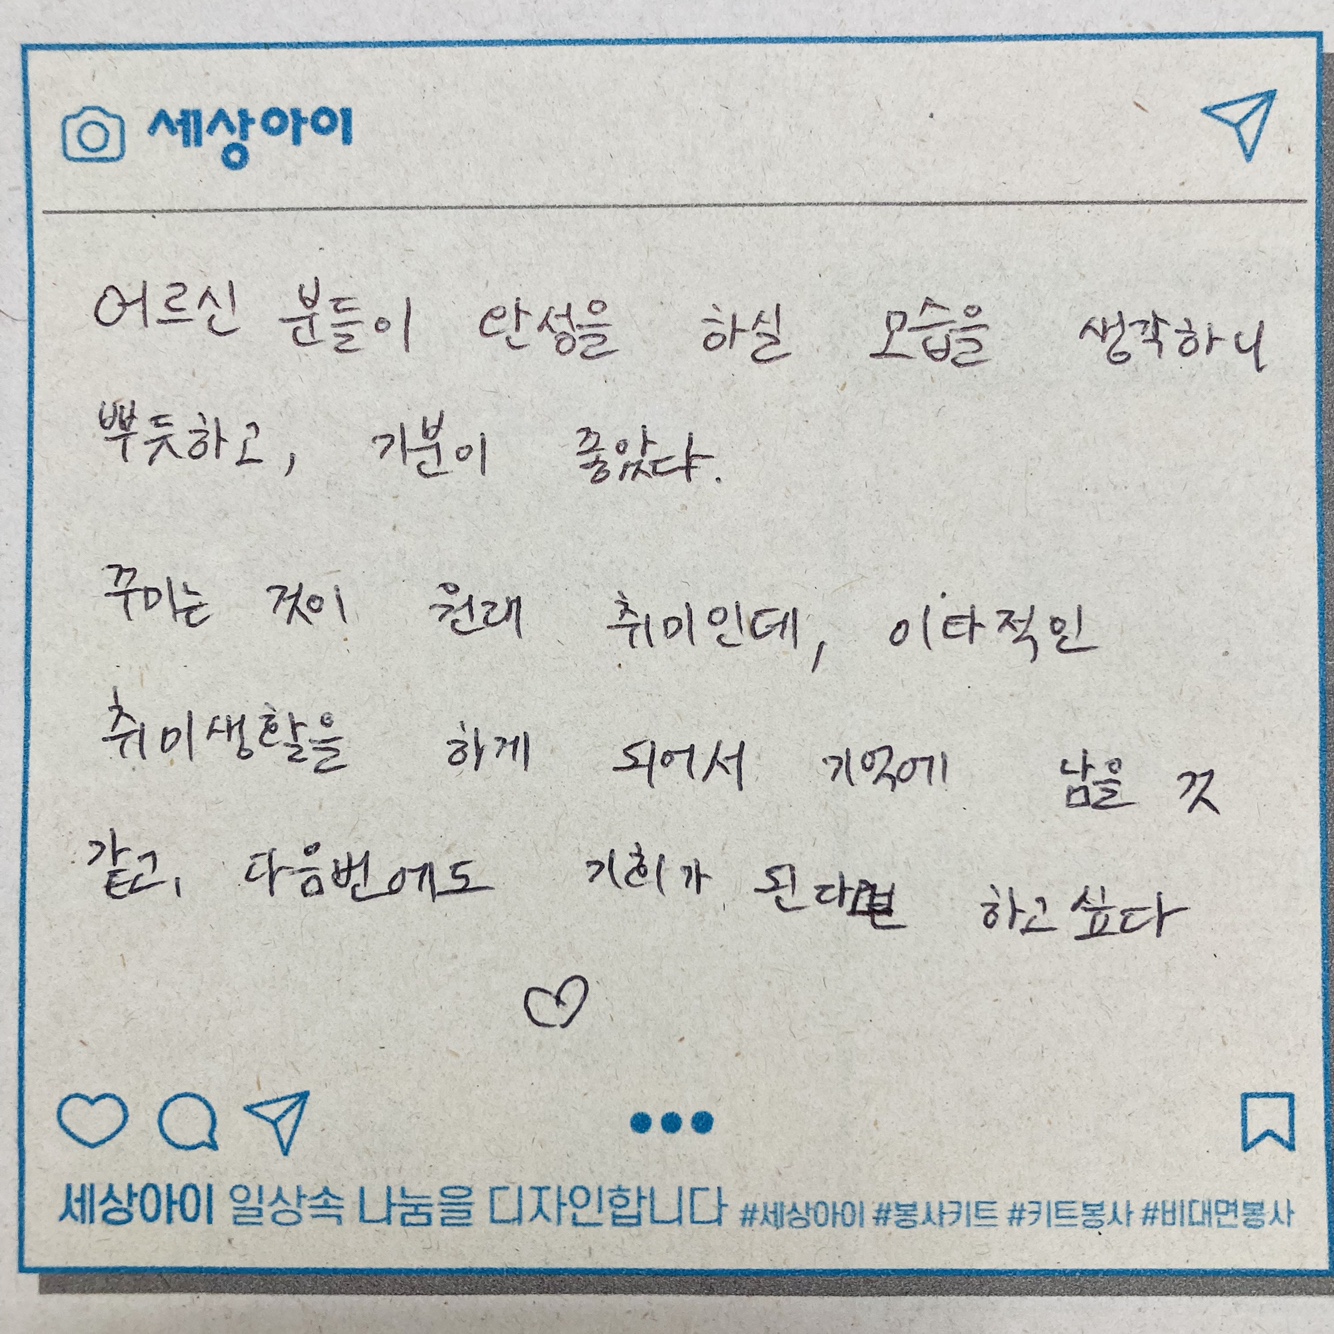 세상아이
어르신 분들이 완성을 하실 모습을 생각하니
뿌듯하고, 기분이 좋았다.
꾸미는 것이 원래 취미인데, 이타적인
취미생활을 하게 되어서 기억에 남을 것
같고, 다음번에도 기회가 된다면 하고싶다
세상아이 일상속 나눔을 디자인합니다 #세상아이 #봉사키트 #키트봉사 #비대면봉사